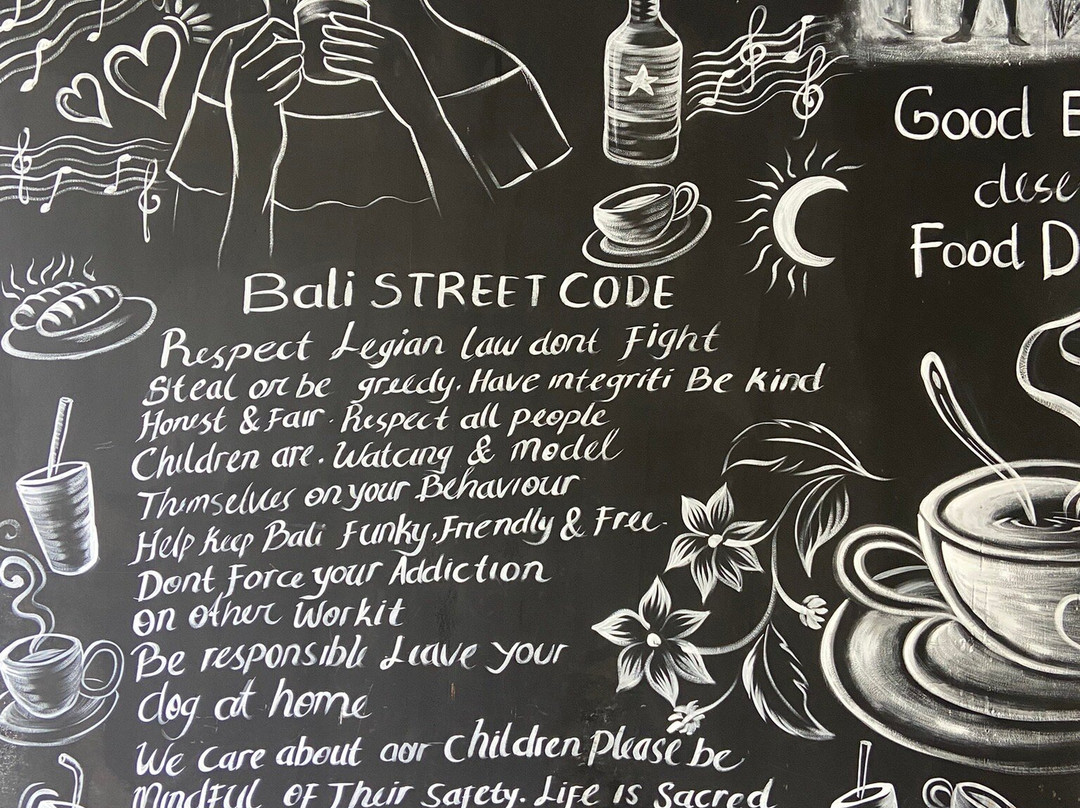 Bali STREET CODE
Respect Legian law dont Fight
Steal or be greedy. Have integriti Be kind
Honest & Fair. Respect all people
Children are. Watcing & Model
Themselves on your Behaviour
Help Keep Bali Funky, Friendly & Free.
Dont Force your Addiction
on other Workit
Be responsible Leave your
dog at home
We care about our children please be
Mindful of Their Safety. Life is Sacred
Good
Food